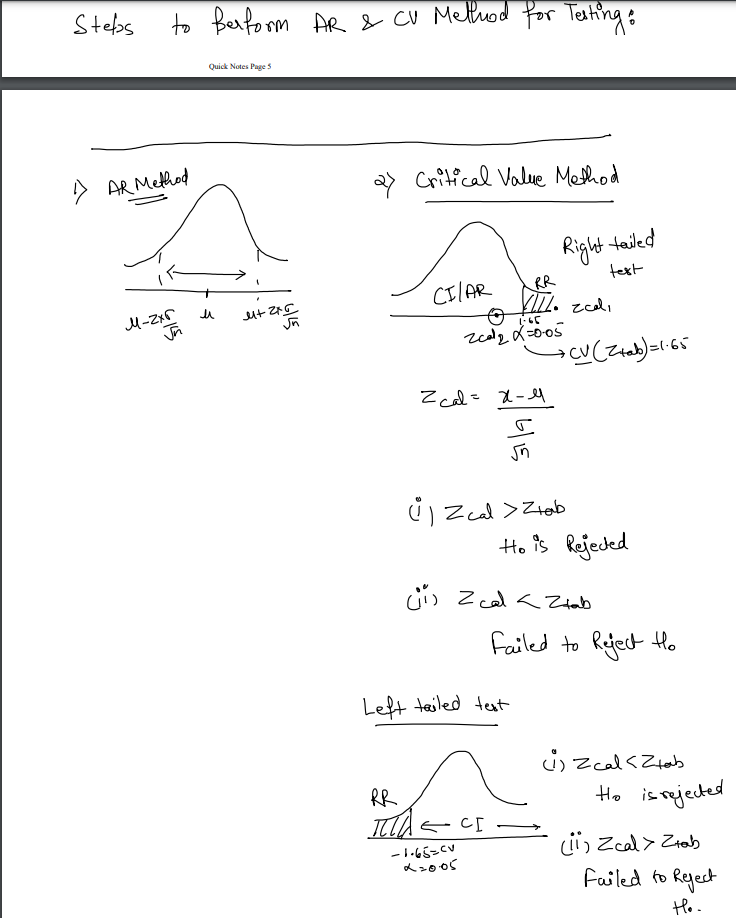 Steps to Perform AR & CV Method for Testing:
Quick Notes Page 5
1) AR Method
μ-z×σ/√n
μ
μ+z×σ/√n
2) Critical Value Method
Right tailed
test
CI/AR
RR
zcal1
1.65
zcal2
α=0.05
CV(Ztab)=1.65
Zcal = x-μ
σ
√n
(i) Zcal > Ztab
Ho is Rejected
(ii) Zcal < Ztab
Failed to Reject Ho
Left tailed test
RR
CI
-1.65=CV
α=0.05
(i) Zcal < Ztab
Ho is rejected
(ii) Zcal > Ztab
Failed to Reject
Ho.